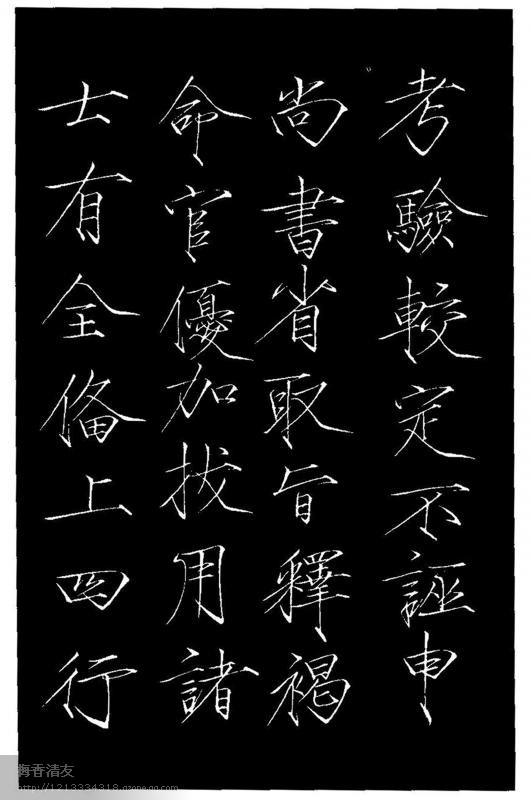 考驗較定不誣申
尚書省取旨釋褐
命官優加拔用諸
士有全俻上四行
梅香清友
http://1213334318.qzone.qq.com